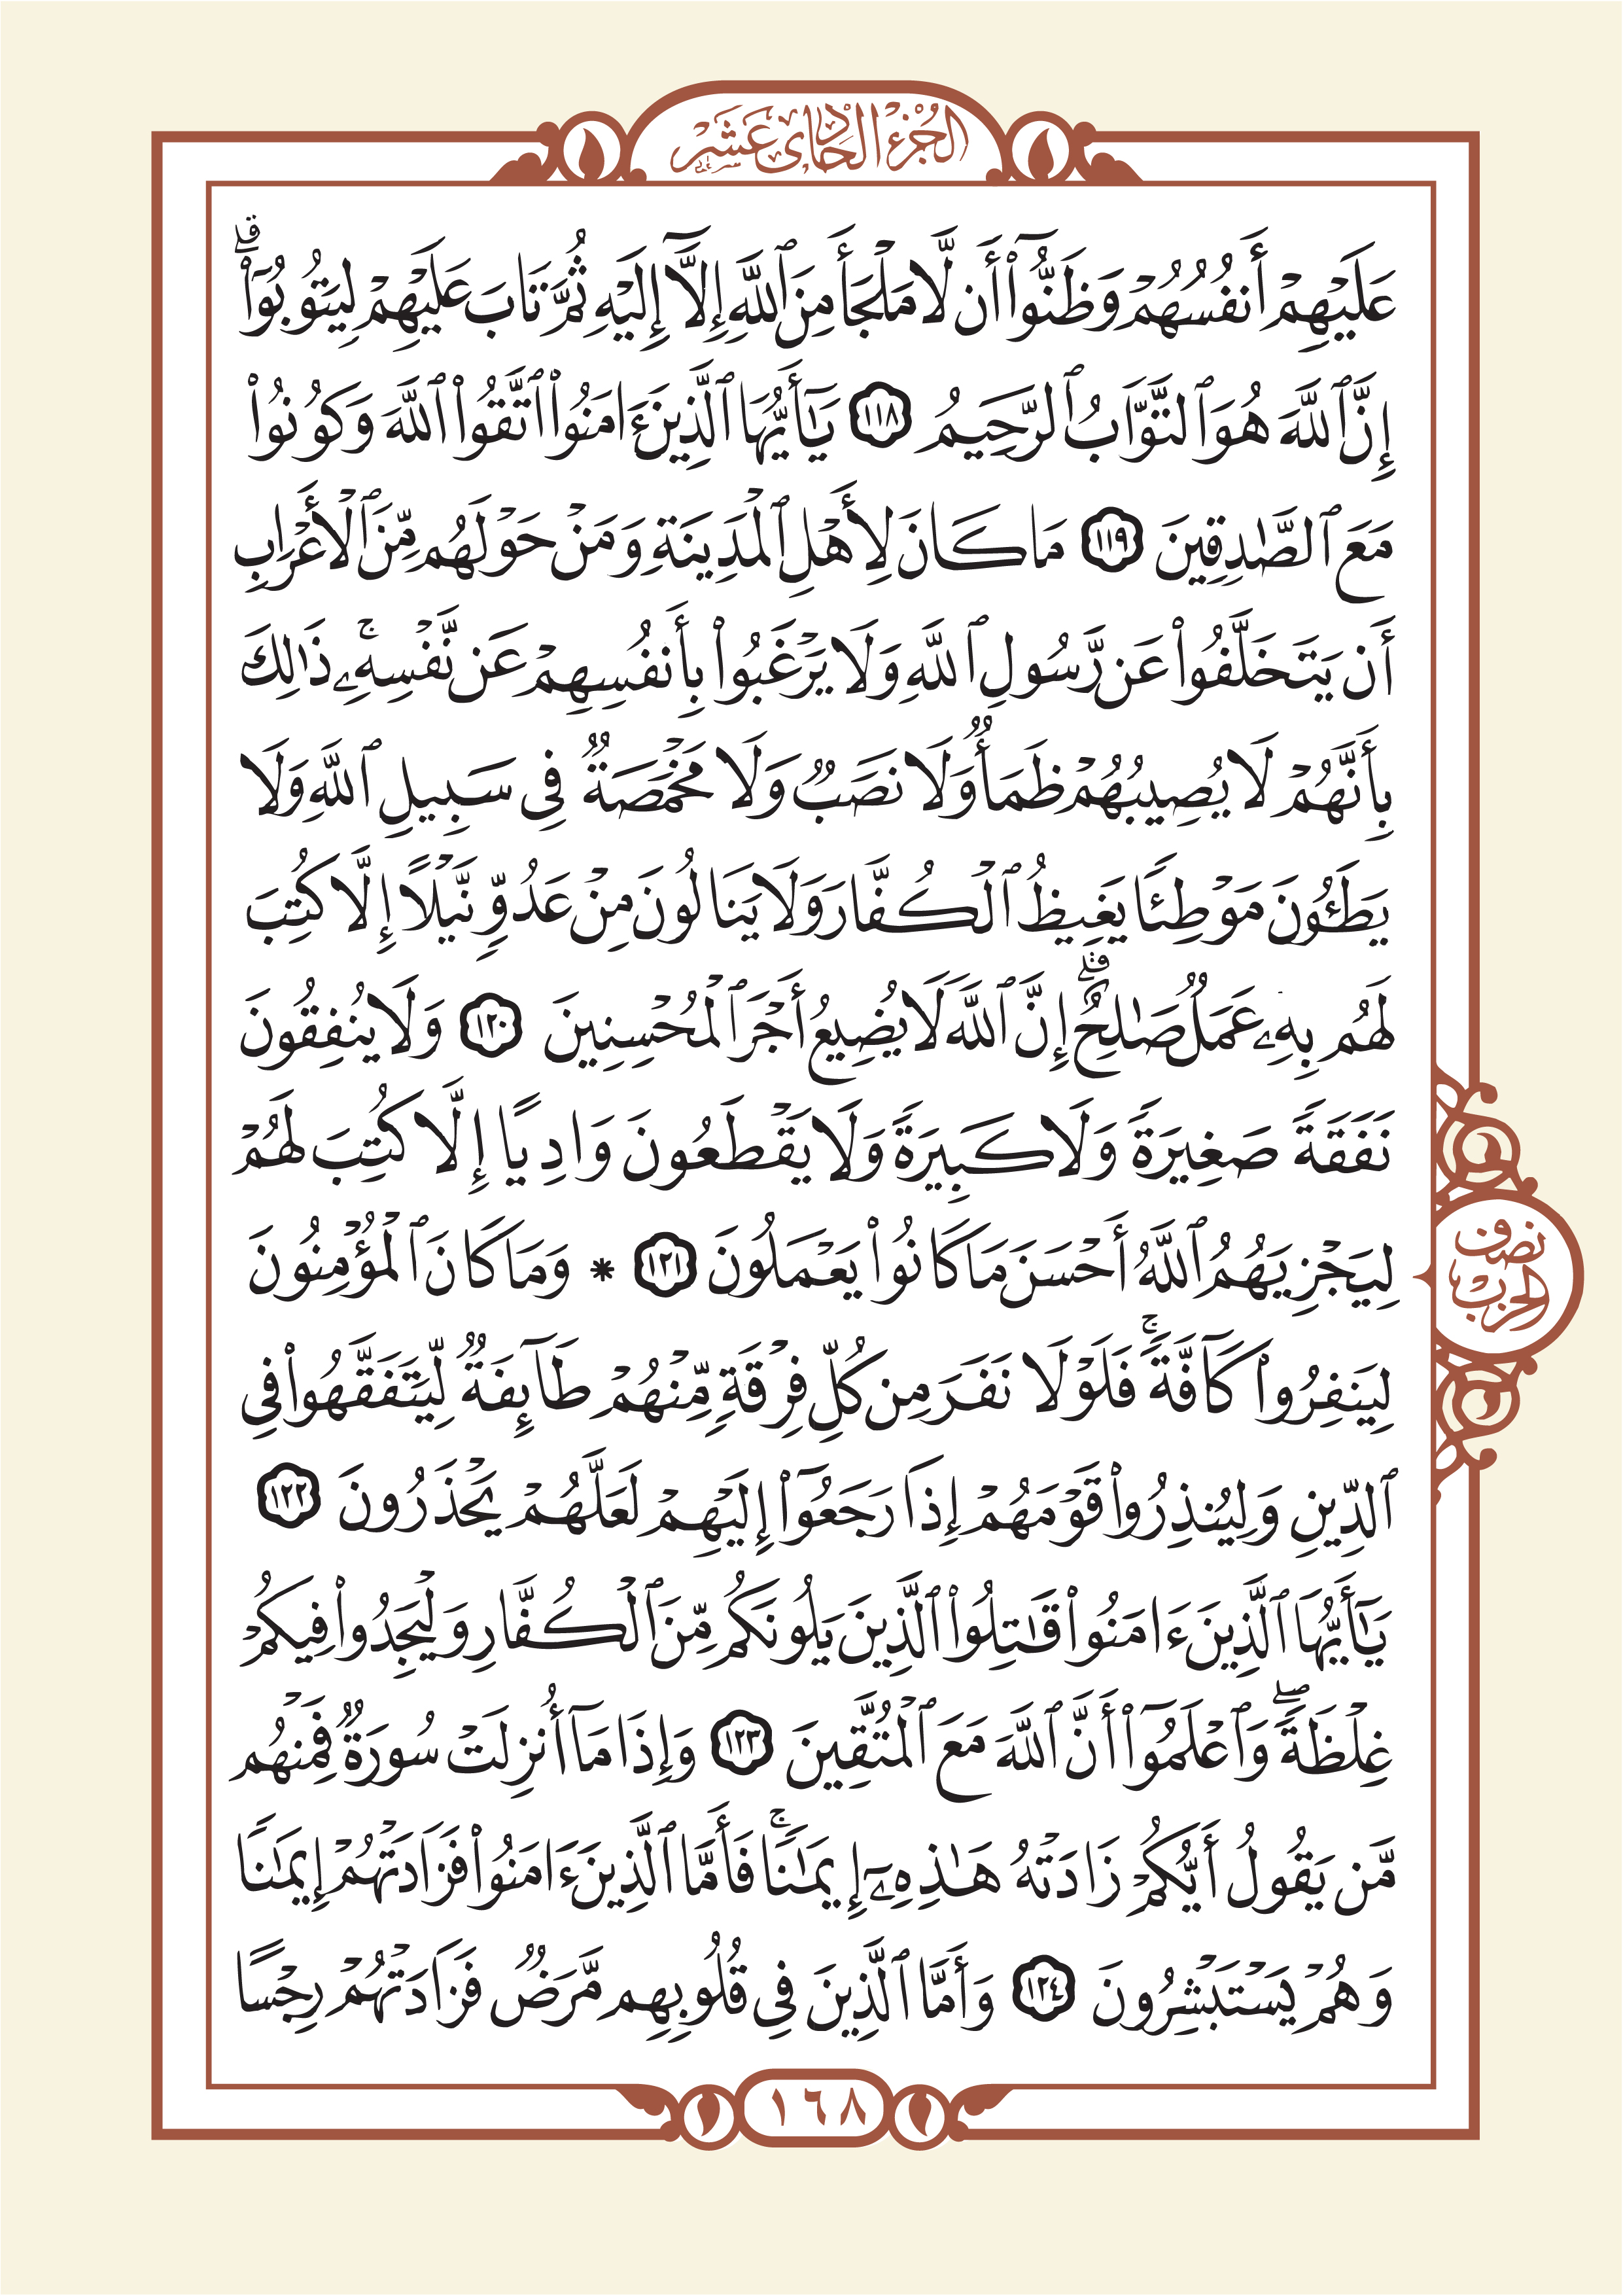 الجزء الحادي عشر
عَلَيْهِمْ أَنفُسُهُمْ وَظَنُّوٓا۟ أَن لَّا مَلْجَأَ مِنَ ٱللَّهِ إِلَّآ إِلَيْهِ ثُمَّ تَابَ عَلَيْهِمْ لِيَتُوبُوٓا۟ۗ
إِنَّ ٱللَّهَ هُوَ ٱلتَّوَّابُ ٱلرَّحِيمُ ١١٨ يَٰٓأَيُّهَا ٱلَّذِينَ ءَامَنُوا۟ ٱتَّقُوا۟ ٱللَّهَ وَكُونُوا۟
مَعَ ٱلصَّٰدِقِينَ ١١٩ مَا كَانَ لِأَهْلِ ٱلْمَدِينَةِ وَمَنْ حَوْلَهُم مِّنَ ٱلْأَعْرَابِ
أَن يَتَخَلَّفُوا۟ عَن رَّسُولِ ٱللَّهِ وَلَا يَرْغَبُوا۟ بِأَنفُسِهِمْ عَن نَّفْسِهِۦۚ ذَٰلِكَ
بِأَنَّهُمْ لَا يُصِيبُهُمْ ظَمَأٌ وَلَا نَصَبٌ وَلَا مَخْمَصَةٌ فِى سَبِيلِ ٱللَّهِ وَلَا
يَطَـُٔونَ مَوْطِئًا يَغِيظُ ٱلْكُفَّارَ وَلَا يَنَالُونَ مِنْ عَدُوٍّ نَّيْلًا إِلَّا كُتِبَ
لَهُم بِهِۦ عَمَلٌ صَٰلِحٌۗ إِنَّ ٱللَّهَ لَا يُضِيعُ أَجْرَ ٱلْمُحْسِنِينَ ١٢٠ وَلَا يُنفِقُونَ
نَفَقَةً صَغِيرَةً وَلَا كَبِيرَةً وَلَا يَقْطَعُونَ وَادِيًا إِلَّا كُتِبَ لَهُمْ
لِيَجْزِيَهُمُ ٱللَّهُ أَحْسَنَ مَا كَانُوا۟ يَعْمَلُونَ ١٢١ * وَمَا كَانَ ٱلْمُؤْمِنُونَ
نصف
الحزب
لِيَنفِرُوا۟ كَآفَّةًۚ فَلَوْلَا نَفَرَ مِن كُلِّ فِرْقَةٍ مِّنْهُمْ طَآئِفَةٌ لِّيَتَفَقَّهُوا۟ فِى
ٱلدِّينِ وَلِيُنذِرُوا۟ قَوْمَهُمْ إِذَا رَجَعُوٓا۟ إِلَيْهِمْ لَعَلَّهُمْ يَحْذَرُونَ ١٢٢
يَٰٓأَيُّهَا ٱلَّذِينَ ءَامَنُوا۟ قَٰتِلُوا۟ ٱلَّذِينَ يَلُونَكُم مِّنَ ٱلْكُفَّارِ وَلْيَجِدُوا۟ فِيكُمْ
غِلْظَةًۖ وَٱعْلَمُوٓا۟ أَنَّ ٱللَّهَ مَعَ ٱلْمُتَّقِينَ ١٢٣ وَإِذَا مَآ أُنزِلَتْ سُورَةٌ فَمِنْهُم
مَّن يَقُولُ أَيُّكُمْ زَادَتْهُ هَٰذِهِۦٓ إِيمَٰنًاۚ فَأَمَّا ٱلَّذِينَ ءَامَنُوا۟ فَزَادَتْهُمْ إِيمَٰنًا
وَهُمْ يَسْتَبْشِرُونَ ١٢٤ وَأَمَّا ٱلَّذِينَ فِى قُلُوبِهِم مَّرَضٌ فَزَادَتْهُمْ رِجْسًا
١٦٨